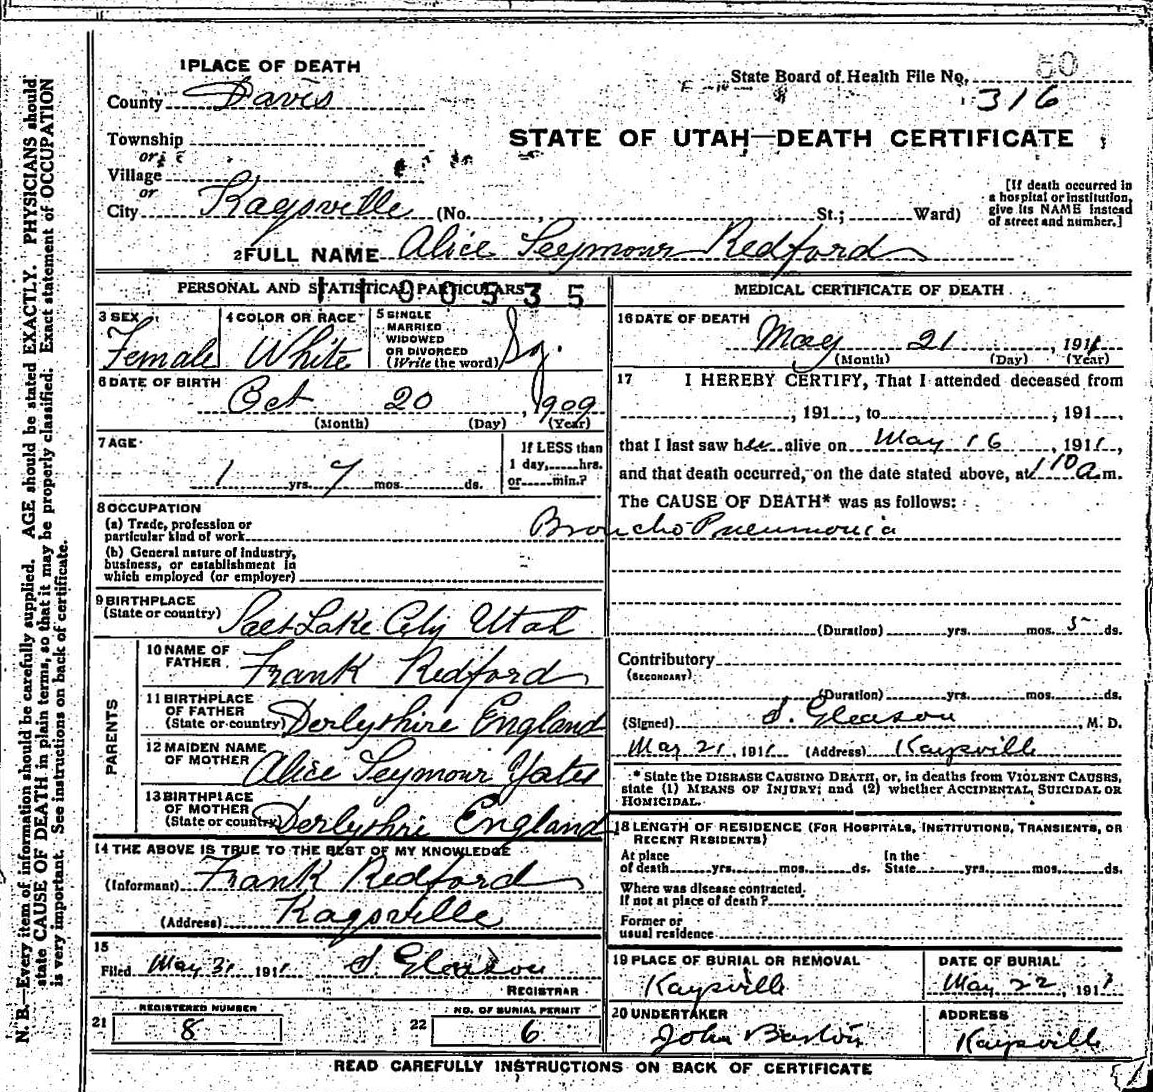 1 PLACE OF DEATH
County Davis
Township
or
Village
or
City Kaysville (No. , St.; Ward)
State Board of Health File No. 60
316
STATE OF UTAH—DEATH CERTIFICATE
[If death occurred in
a hospital or institution,
give its NAME instead
of street and number.]
2 FULL NAME Alice Seymour Redford
PERSONAL AND STATISTICAL PARTICULARS
1100535
3 SEX
Female
4 COLOR OR RACE
White
5 SINGLE
MARRIED
WIDOWED
OR DIVORCED
(Write the word) Sg.
6 DATE OF BIRTH
Oct 20, 1909
(Month) (Day) (Year)
7 AGE
1 yrs. 7 mos. ds.
If LESS than
1 day, hrs.
or min.?
8 OCCUPATION
(a) Trade, profession or
particular kind of work
(b) General nature of industry,
business, or establishment in
which employed (or employer)
9 BIRTHPLACE
(State or country) Salt Lake City Utah
PARENTS
10 NAME OF
FATHER Frank Redford
11 BIRTHPLACE
OF FATHER
(State or country) Derbyshire England
12 MAIDEN NAME
OF MOTHER Alice Seymour Yates
13 BIRTHPLACE
OF MOTHER
(State or country) Derbyshire England
14 THE ABOVE IS TRUE TO THE BEST OF MY KNOWLEDGE
(Informant) Frank Redford
(Address) Kaysville
15
Filed May 31 1911 S Gleason
REGISTRAR
21
REGISTERED NUMBER
8
22
NO. OF BURIAL PERMIT
6
MEDICAL CERTIFICATE OF DEATH
16 DATE OF DEATH
May 21, 1911
(Month) (Day) (Year)
17 I HEREBY CERTIFY, That I attended deceased from
, 191 , to , 191 ,
that I last saw her alive on May 16, 1911
and that death occurred, on the date stated above, at 1 10 a.m.
The CAUSE OF DEATH* was as follows:
Broncho Pneumonia
(Duration) yrs. mos. 5 ds.
Contributory
(SECONDARY)
(Duration) yrs. mos. ds.
(Signed) S. Gleason M. D.
May 21, 1911 (Address) Kaysville
* State the DISEASE CAUSING DEATH, or, in deaths from VIOLENT CAUSES,
state (1) MEANS OF INJURY; and (2) whether ACCIDENTAL, SUICIDAL OR
HOMICIDAL.
18 LENGTH OF RESIDENCE (FOR HOSPITALS, INSTITUTIONS, TRANSIENTS, OR
RECENT RESIDENTS)
At place
of death yrs. mos. ds.
In the
State yrs. mos. ds.
Where was disease contracted.
If not at place of death?
Former or
usual residence
19 PLACE OF BURIAL OR REMOVAL
Kaysville
DATE OF BURIAL
May 22, 1911
20 UNDERTAKER
John Barton
ADDRESS
Kaysville
READ CAREFULLY INSTRUCTIONS ON BACK OF CERTIFICATE
N. B.—Every item of information should be carefully supplied. AGE should be stated EXACTLY. PHYSICIANS should
state CAUSE OF DEATH in plain terms, so that it may be properly classified. Exact statement of OCCUPATION
is very important. See instructions on back of certificate.